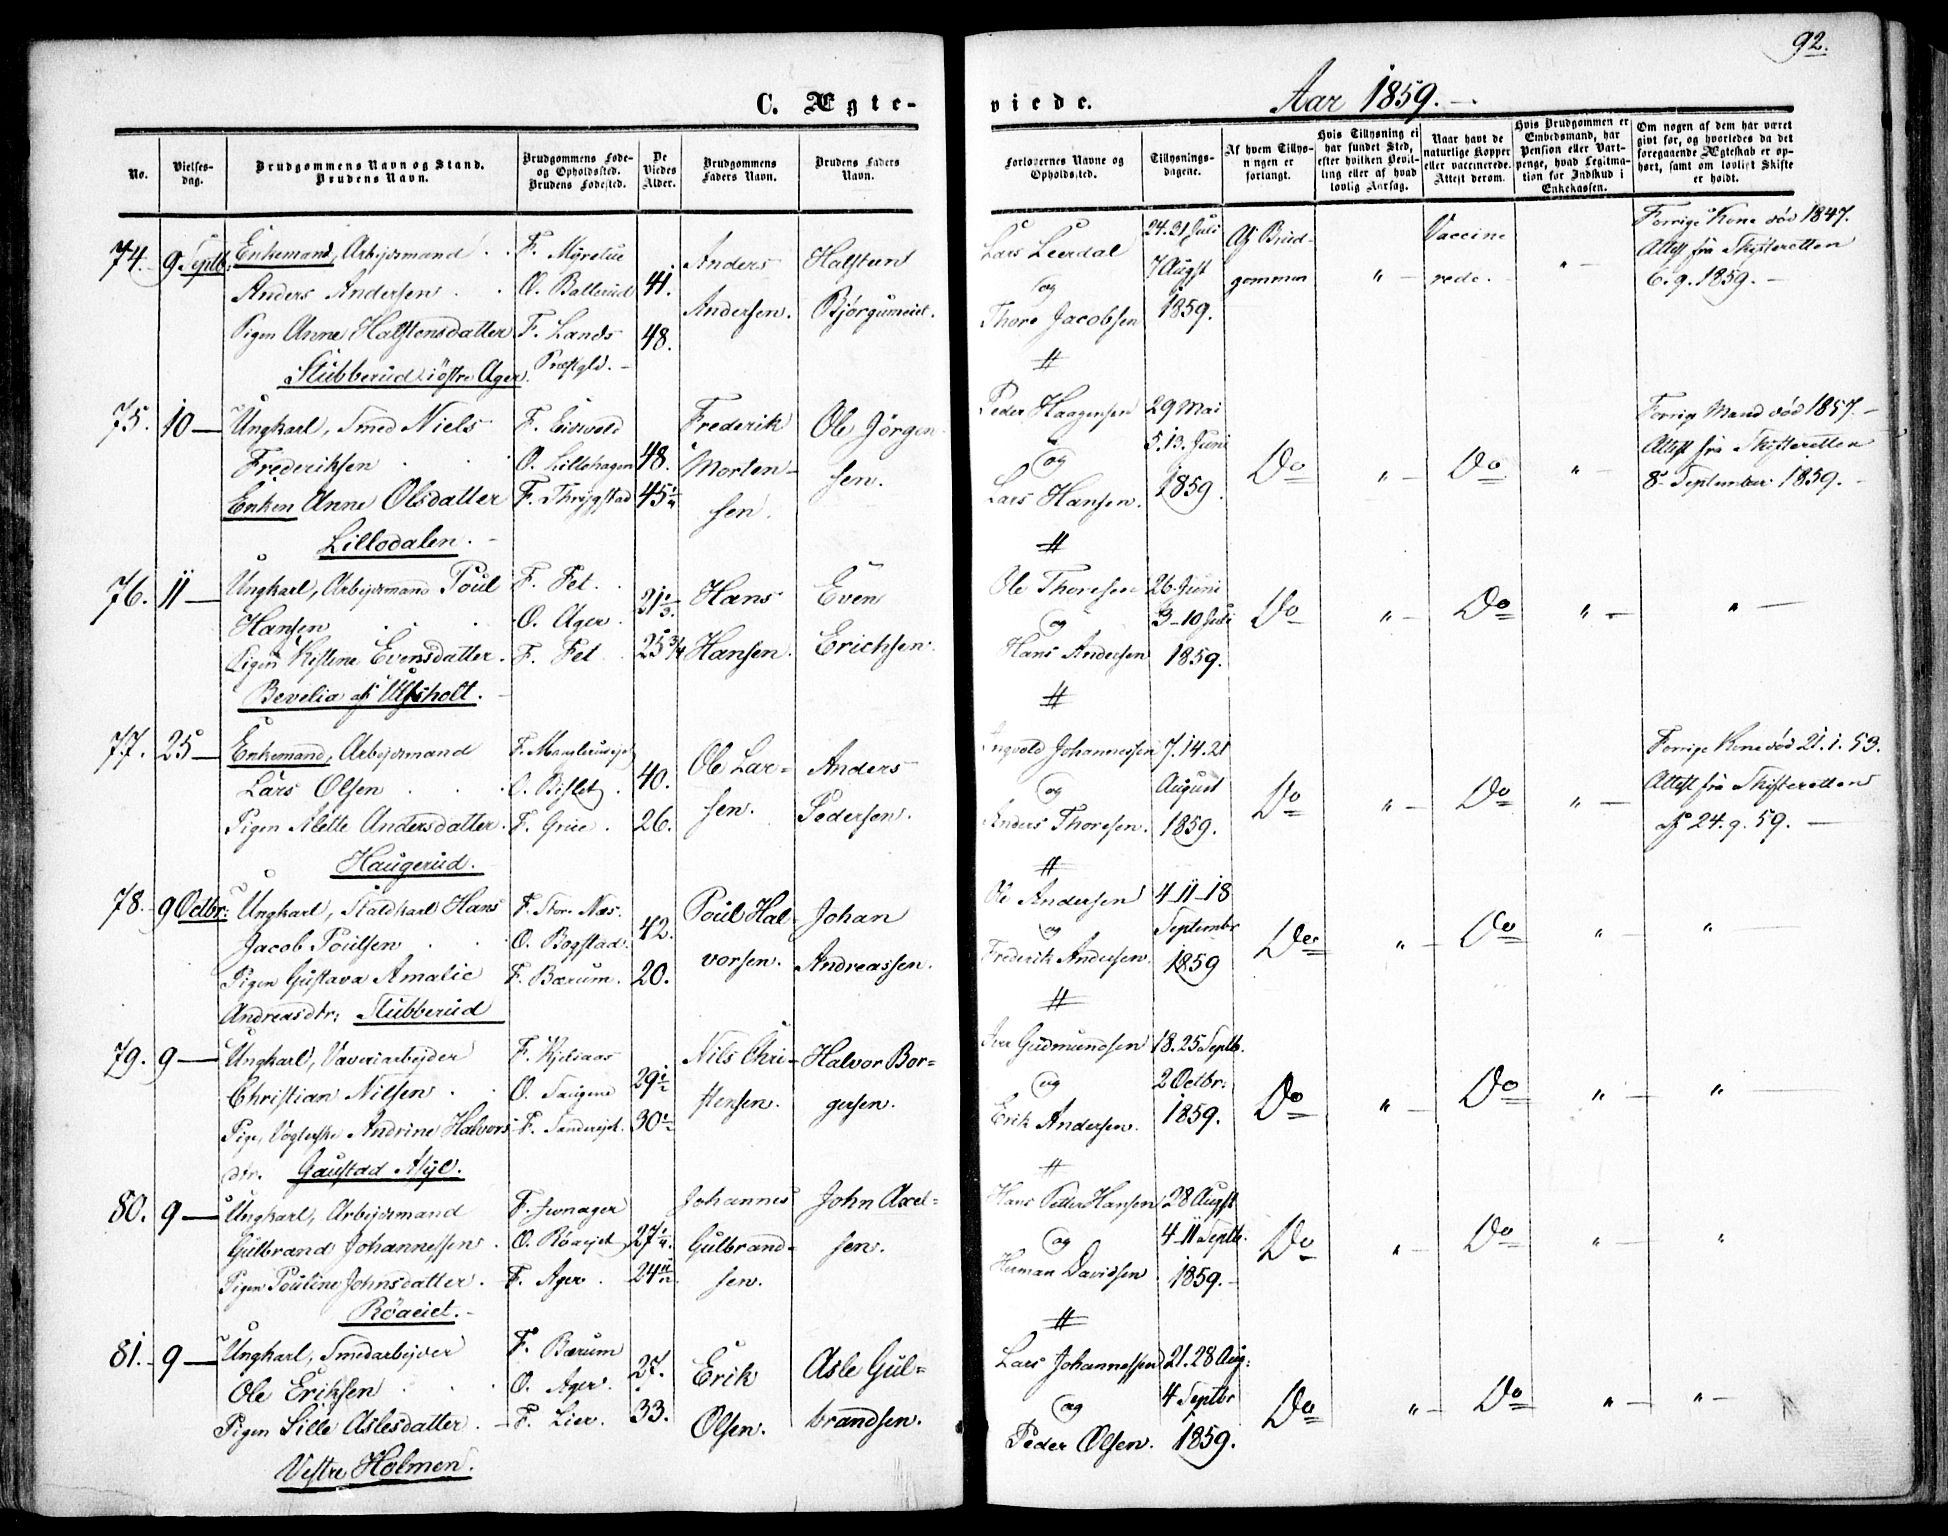 92.
C. Ægte-
viede.
Aar 1859.
No.
Vielses-
dag.
Brudgommens Navn og Stand.
Brudens Navn.
Brudgommens Føde-
og Opholdssted.
Brudens Fødested.
De
Viedes
Alder.
Brudgommens
Faders Navn.
Brudens Faders
Navn.
Forlovernes Navne og
Opholdssted.
Tillysnings-
dagene.
Af hvem Tillys-
ningen er
forlangt.
Hvis Tillysning ei
har fundet Sted,
efter hvilken Bevil-
ling eller af hvad
lovlig Aarsag.
Naar havt de
naturlige Kopper
eller vaccinerede.
Attest derom.
Hvis Brudgommen er
Embedsmand, har
Pension eller Vart-
penge, hvad Legitima-
tion for Indskud i
Enkekassen.
Om nogen af dem har været
givt før, og hvorledes da det
foregaaende Ægteskab er op-
hørt, samt om lovligt Skifte
er holdt.
74. 9 Septb. Enkemand, Arbejdsmand
Anders Andersen
Pigen Anne Halstensdatter
Stubberud i østre Ager.
F.
O. Ballerud
F. Lands
Præstgld.
41.
48.
Anders
Andersen.
Halsten
Lars Leerdal
og
Thore Jacobsen
24. 31 Juli
7 Augst
1859.
Af Brud-
gommen
"
Vaccine
rede.
"
Forrige Kone død 1847.
Attest fra Skifteretten
6. 9. 1859.
75. 10 — Ungkarl, Smed Niels
Frederiksen
Enken Anne Olsdatter
Lillodalen.
F. Eidsvold
O. Lillohagen
F.
48.
45 1/4
Frederik
Morten-
sen.
Ole Jørgen-
sen.
Peder Haagensen
og
Lars Hansen.
29 Mai
5. 13. Juni
1859.
Do
"
Do
"
Forrige Mand død 1857.
Attest fra Skifteretten
8 September 1859.
76. 11 — Ungkarl, Arbejdsmand Poul
Hansen
Pigen Kistine Evensdatter.
Bevelia af Ulfsholt.
F. Fet.
O. Ager.
F. Fet
25 3/4
Hans
Hansen.
Even
Erichsen.
Ole Thoresen
og
Hans Andersen
26 Juni
3 - 10 Juli
1859.
Do
"
Do
"
"
77. 25 — Enkemand, Arbejdsmand
Lars Olsen
Pigen Alette Andersdatter.
Haugerud.
F. Manglerudejet
O. Bislet
F. Grue.
40.
26.
Ole Lar-
sen.
Anders
Pedersen.
Ingvold Johannessen
og
Anders Thoresen.
7. 14. 21
August
1859.
Do
"
Do
"
Forrige Kone død 21. 1. 53.
Attest fra Skifteretten
af 24. 9. 59.
78. 9 Octbr: Ungkarl, Staldkarl Hans
Jacob Poulsen
Pigen Gustava Amalie
Andreasdtr: Stubberud
F. Stor. Næs.
O. Bogstad.
F. Bærum.
42.
20.
Poul Hal-
vorsen.
Johan
Andreassen.
Ole Andersen
og
Frederik Andersen.
4 - 11 - 18
Septembr
1859
Do
"
Do
"
"
79. 9 — Ungkarl, Væveriarbejder
Christian Nilsen
Pige, Andrine Halvors-
dtr. Gaustad Asyl.
F. Kjelsaas
O. Saugene
F. Sanderejet.
29 1/2
30 1/2
Nils Chri-
stensen.
Halvor Bor-
gersen.
Iver Gudmundsen
og
Erik Andersen.
18. 25 Septb.
2 Octbr:
1859.
Do
"
Do
"
"
80. 9 — Ungkarl, Arbejdsmand
Gulbrand Johannessen.
Pigen Pouline Johnsdatter.
Røaeiet.
F. Jevnager
O. Røaejet
F. Ager.
27 1/4.
24 11/12
Johannes
Gulbrand-
sen.
John Axel-
sen.
Hans Petter Hansen
og
Herman Davidsen
28 Augst
4 - 11 Septb.
1859.
Do
"
Do
"
"
81. 9 — Ungkarl, Smedarbejder
Ole Eriksen
Pigen Lille Aslesdatter.
Vestre Holmen.
F. Bærum
O. Ager.
F. Lier.
27.
33.
Erik
Olsen.
Asle Gul-
brandsen.
Lars Johannessen
og
Peder Olsen.
21. 28 Aug:
4 Septbr
1859.
Do
"
Do
"
"